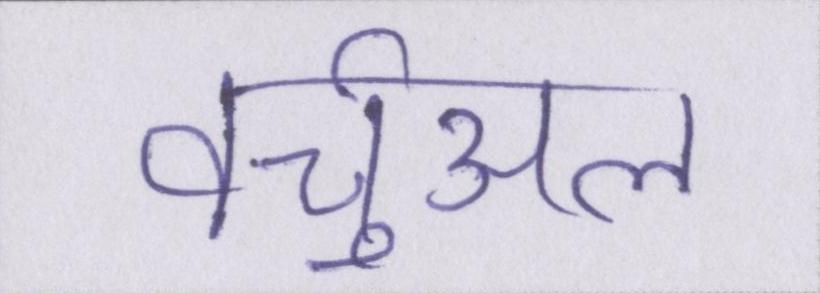 वर्चुअल